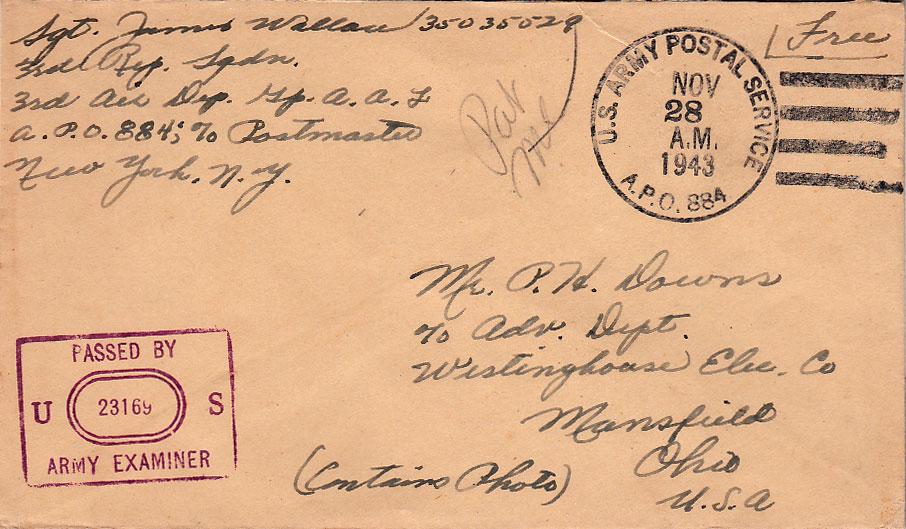 Sgt. James Wallace 35035029
3rd Rep. Sqdn.
3rd Air Dep. Gp. A.A.F
A.P.O. 884, % Postmaster
New York, N.Y.
Free
U.S. ARMY POSTAL SERVICE
NOV
28
A.M.
1943
A.P.O. 884
Mr. P. H. Downs
% Adv. Dept.
Westinghouse Elec. Co
Mansfield
Ohio
U.S.A
(Contains Photo)
PASSED BY
U 23169 S
ARMY EXAMINER